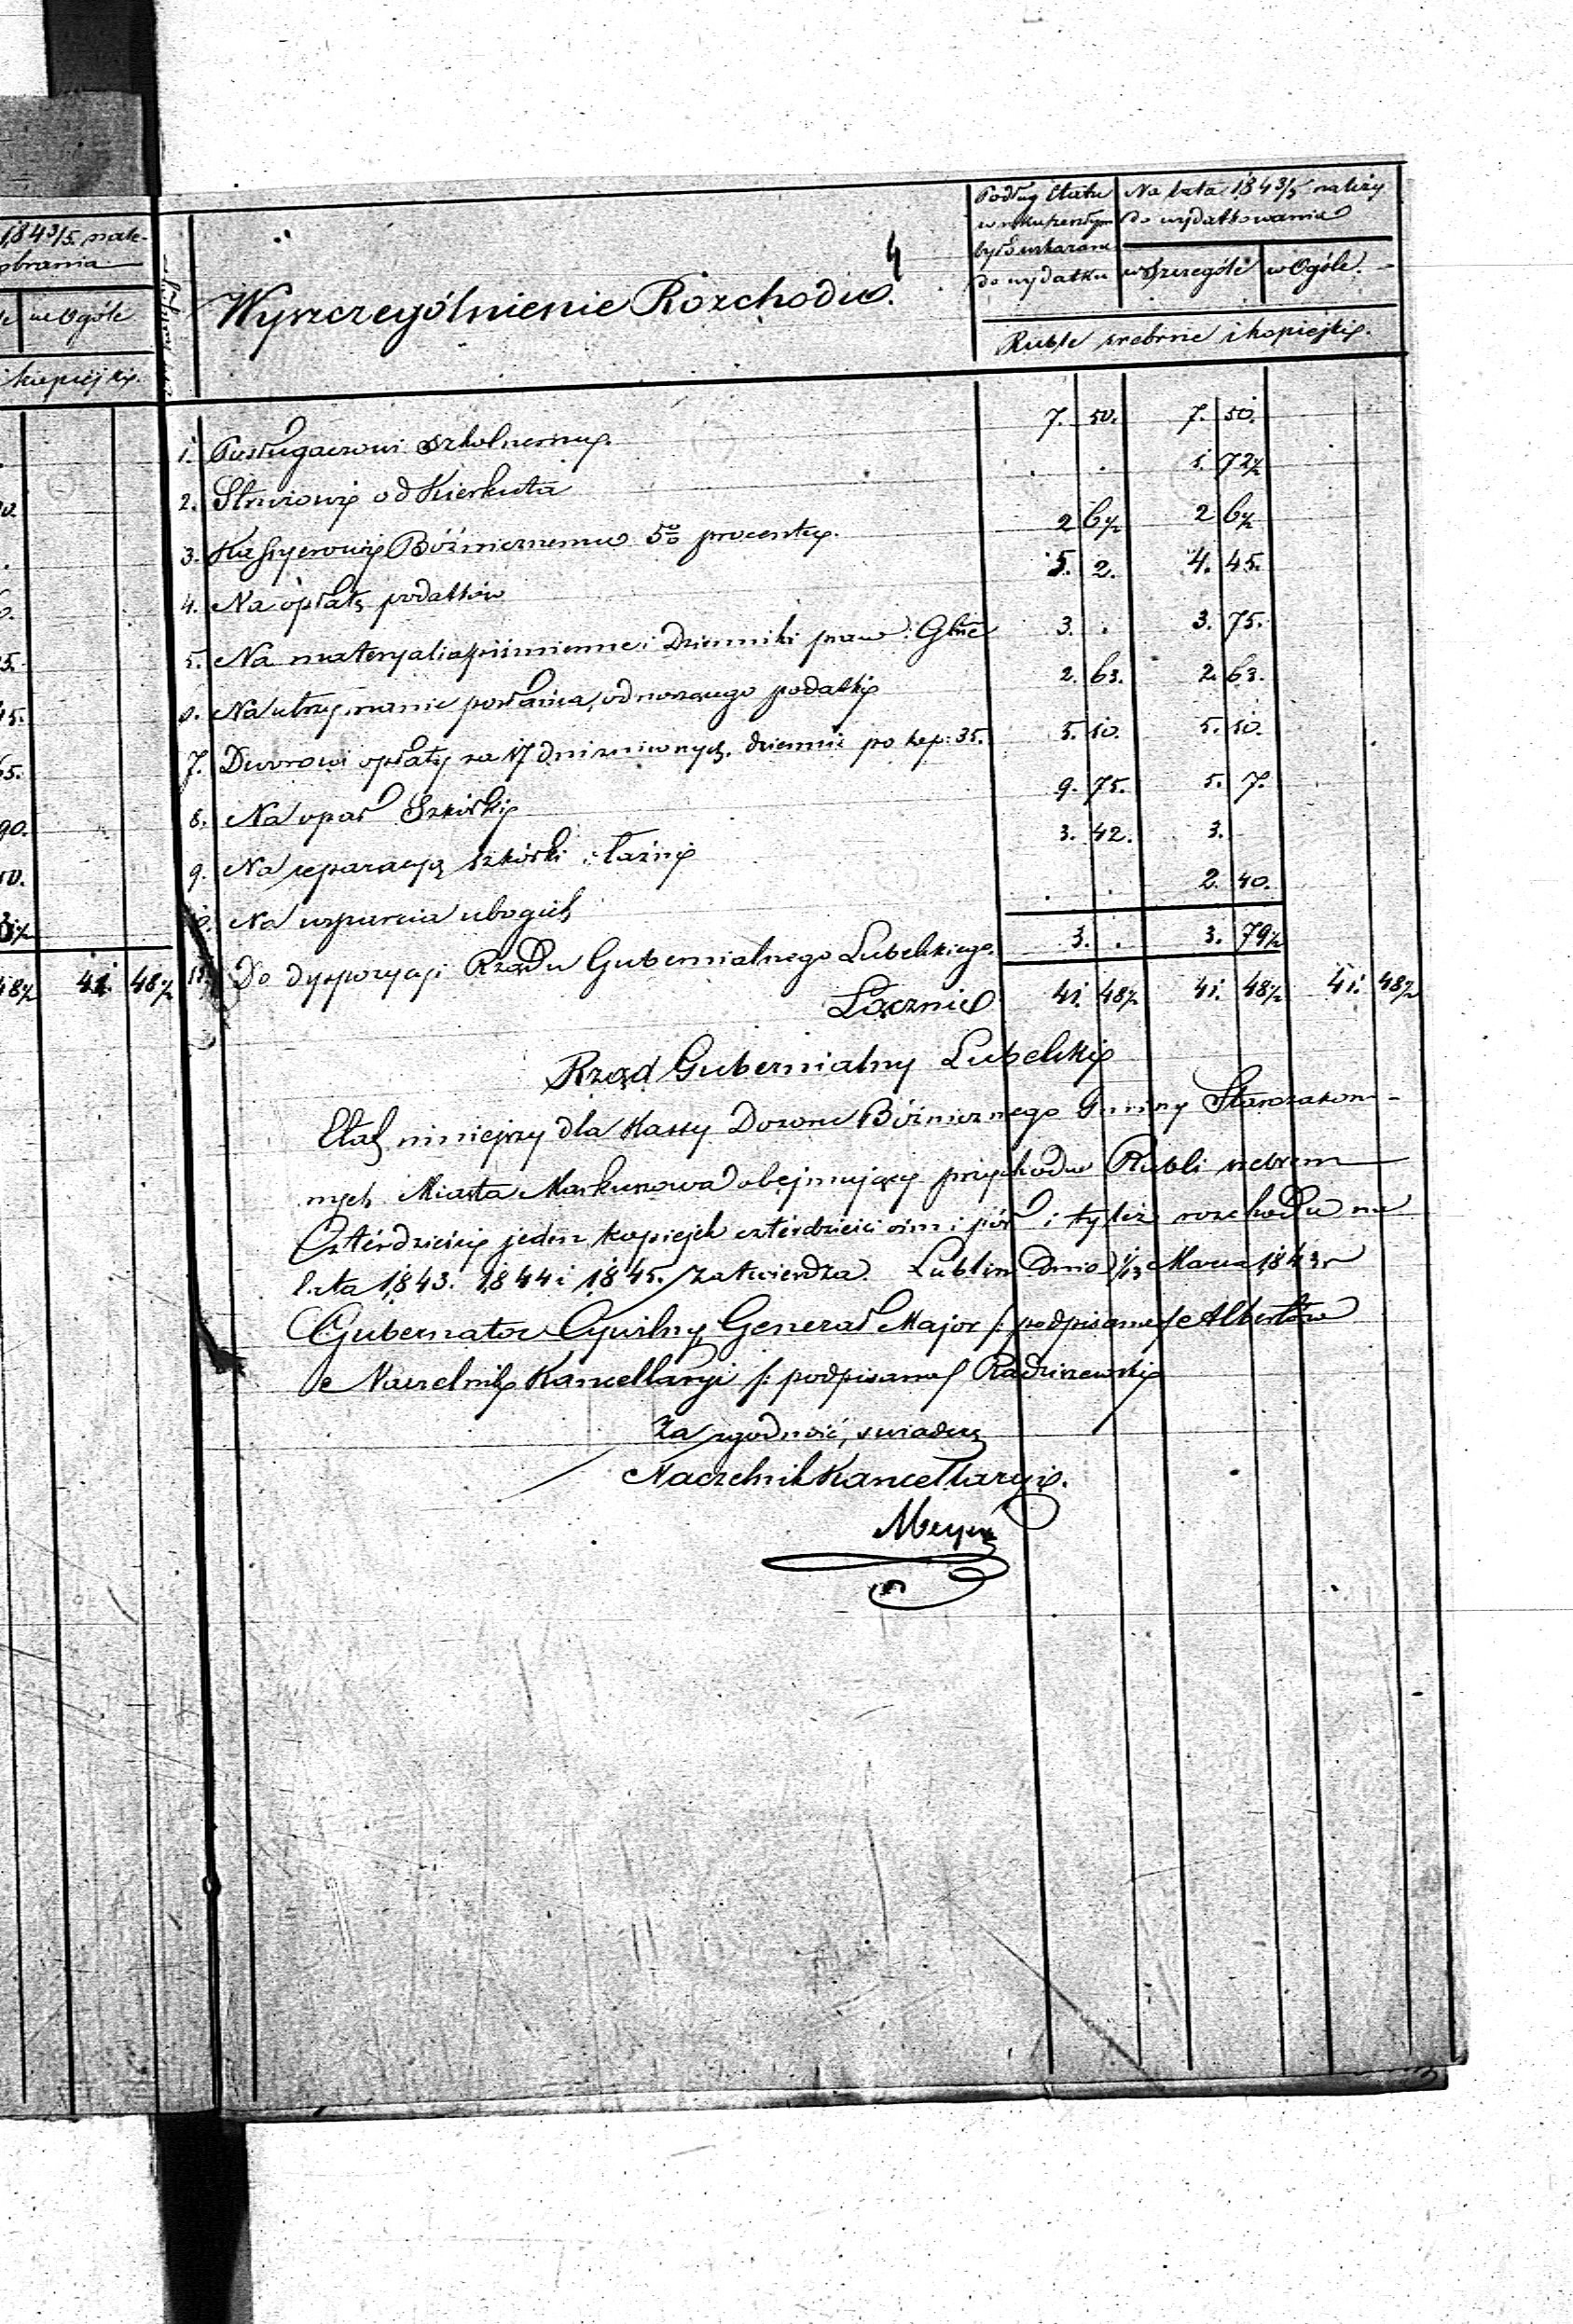 1843/5. nale-
obrania
we Ogóle
i kopiejki.
41. 48½
4
Wyszczególnienie Rozchodu.
Podług Etatu
w roku zeszłym
było wskazane
do wydatku
Na lata 1843/5 należy
do wydatkowania
w Szczególe w Ogóle.
Ruble srebrne i kopiejki.
1. Posługaczowi szkolnemu. 7. 50. 7. 50.
2. Stróżowi od Kierkuta . . 1. 72½
3. Kassyerowi Bóżnicznemu 5% procentu. 2 6½ 2 6½
4. Na opłatę podatków 5. 2. 4. 45.
5. Na materyalia piśmienne i Dzienniki praw: Gbñe 3. . 3. 75.
6. Na utrzymanie posłańca, odnoszącego podatki 2. 63. 2. 63.
7. Dworowi opłaty za 17 dni żniwnych, dziennie po kop: 35. 5. 10. 5. 10.
8. Na opał Szkółki 9. 75. 5. 7.
9. Na reparacyą szkółki i łaźni 3. 42. 3.
10. Na wsparcia ubogich . . 2. 40.
11. Do dyspozycyi Rządu Gubernialnego Lubelskiego. 3. . 3. 79½
Łącznie 41. 48½ 41. 48½ 41. 48½
Rząd Gubernialny Lubelski
Etat niniejszy dla Kassy Dozoru Bóżnicznego Gminy Starozakon-
nych Miasta Markuszowa obejmujący przychodu Rubli srebrem
Czterdzieści jeden, kopiejek czterdzieści ośm i pół i tyleż rozchodu na
lata 1843. 1844 i 1845. zatwierdza. Lublin Dnia 1/13 Marca 1843 r
Gubernator Cywilny Generał Major /: podpisano / Albertów
Naczelnik Kancellaryi /: podpisano / Radziszewski
Za zgodność, świadczę
Naczelnik Kancellaryi.